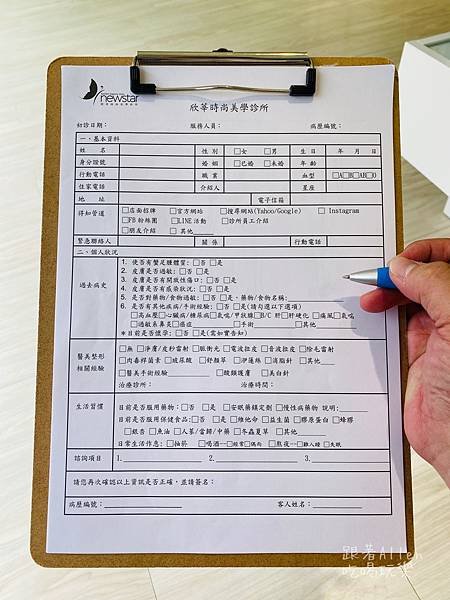 newstar
欣華時尚美學診所
初診日期： 服務人員： 病歷編號：
一、基本資料
姓 名 性 別 □女 □男 生 日 年 月 日
身分證號 婚 姻 □已婚 □未婚 年 齡
行動電話 職 業 血型 □A□B□AB□O
住家電話 介紹人 星座
地 址 電子信箱
得知管道 □店面招牌 □官方網站 □搜尋網站(Yahoo/Google) □ Instagram
□FB粉絲團 □LINE活動 □診所員工介紹
□朋友介紹 □ 其他____
緊急聯絡人 關 係 行動電話
二、個人狀況
過去病史
1. 使否有蟹足腫體質:□否 □是
2. 皮膚是否過敏:□否 □是
3. 皮膚是否有開放性傷口:□否 □是
4. 皮膚是否有感染狀況:□否 □是
5. 是否對藥物/食物過敏:□否 □是，藥物/食物名稱:____
6. 是否有其他疾病/手術經驗:□否 □是(請勾選以下選項)
□高血壓□心臟病□糖尿病□氣喘/甲狀腺□B/C 肝□肝硬化 □痛風□氣喘
□過敏系鼻炎□癌症____ □手術____ □其他____
*目前是否懷孕:□否 □是(需如實告知)
醫美整形
相關經驗
□無 □淨膚/皮秒雷射 □脈衝光 □電波拉皮 □音波拉皮 □除毛雷射
□肉毒桿菌素 □玻尿酸 □舒顏萃 □伊蓮絲 □消脂針 □其他____
□醫美手術經驗____ □酸類護膚 □美白針
治療診所： 治療時間：
生活習慣
目前是否服用藥物：□否 □是 □安眠藥鎮定劑 □慢性病藥物 說明:____
目前是否服用保健食品:□否 □是 □維他命 □益生菌 □膠原蛋白 □蜂膠
□銀杏 □魚油 □人蔘/當歸/中藥 □冬蟲夏草 □其他
日常生活作息: □抽菸 □喝酒--□經常□偶而 □熬夜--□難入睡 □失眠
諮詢項目 1.____ 2.____ 3.____
請您再次確認以上資訊是否正確，並請簽名：
病歷編號：____ 客人姓名：____
跟著Allen
吃喝玩樂